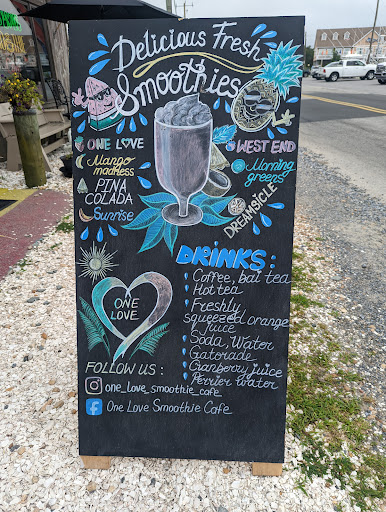 Delicious Fresh
Smoothies
ONE LOVE
Mango
madness
PINA
COLADA
Sunrise
WEST END
Morning
greens
DREAMSICLE
DRINKS:
Coffee, bai tea
Hot tea
Freshly
squeezed orange
juice
Soda, Water
Gatorade
Cranberry juice
Perrier water
ONE
LOVE
FOLLOW US:
one_love_smoothie_cafe
One Love Smoothie Cafe